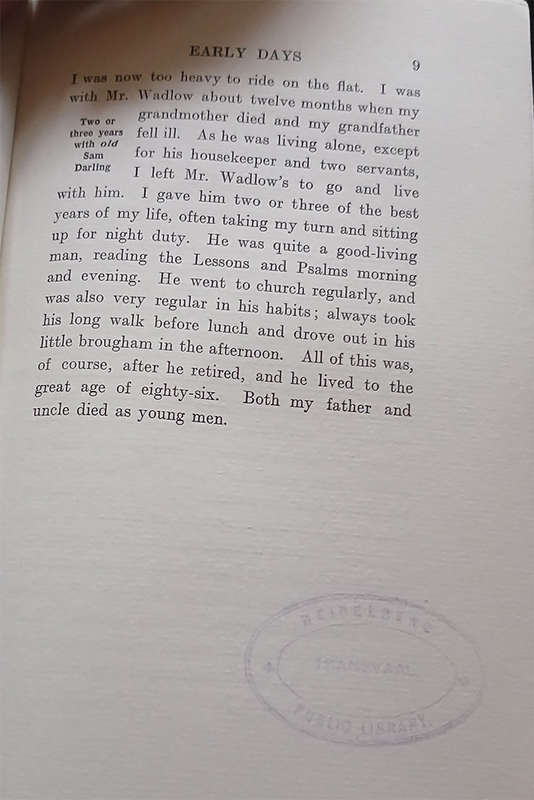 EARLY DAYS
9
I was now too heavy to ride on the flat. I was
with Mr. Wadlow about twelve months when my
grandmother died and my grandfather
fell ill. As he was living alone, except
for his housekeeper and two servants,
I left Mr. Wadlow's to go and live
Two or
three years
with old
Sam
Darling
with him. I gave him two or three of the best
years of my life, often taking my turn and sitting
up for night duty. He was quite a good-living
man, reading the Lessons and Psalms morning
and evening. He went to church regularly, and
was also very regular in his habits; always took
his long walk before lunch and drove out in his
little brougham in the afternoon. All of this was,
of course, after he retired, and he lived to the
great age of eighty-six. Both my father and
uncle died as young men.
HEIDELBERG
TRANSVAAL
PUBLIC LIBRARY.